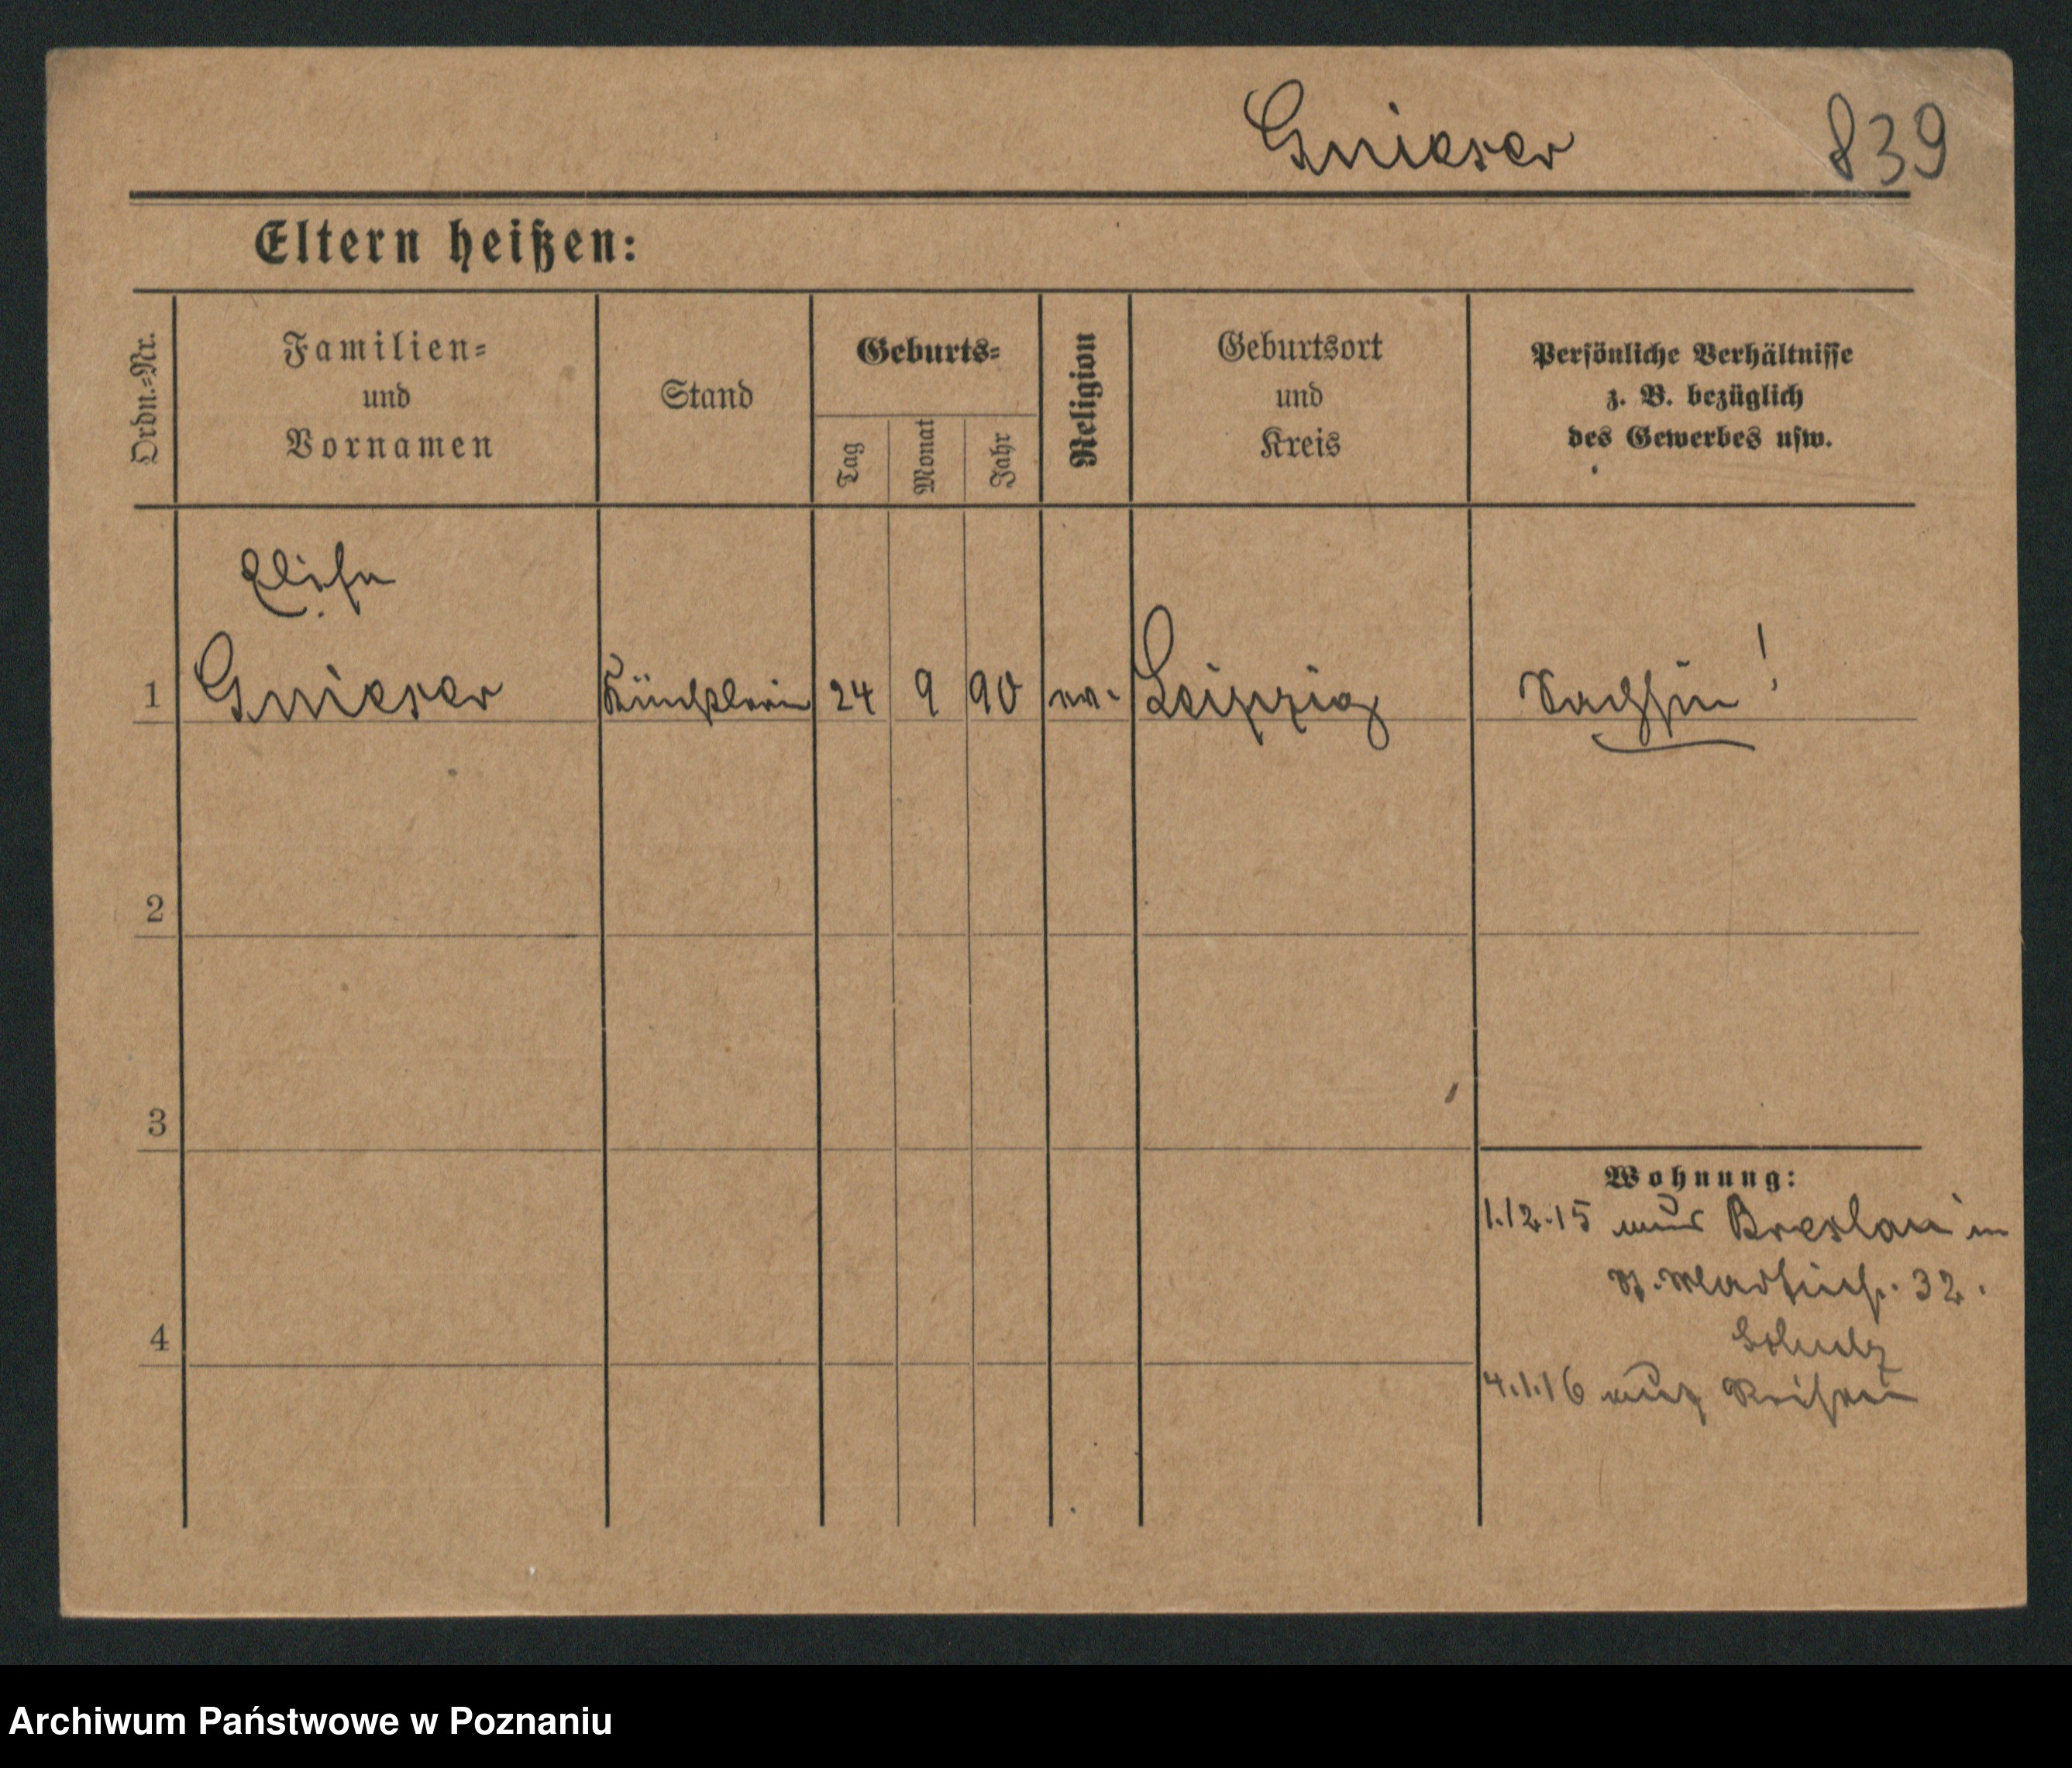 Gnieser 839
Eltern heißen:
Ordn.=Nr.
Familien=
und
Vornamen
Stand
Geburts=
Tag
Monat
Jahr
Religion
Geburtsort
und
Kreis
Persönliche Verhältnisse
z. B. bezüglich
des Gewerbes usw.
Elise
1 Gnieser Künstlerin 24 9 90 ev. Leipzig Sachsen!
2
3
4
Wohnung:
1.12.15 aus Breslau in
St. Martinstr. 32.
Schulz
4.1.16 auf Reisen
Archiwum Państwowe w Poznaniu